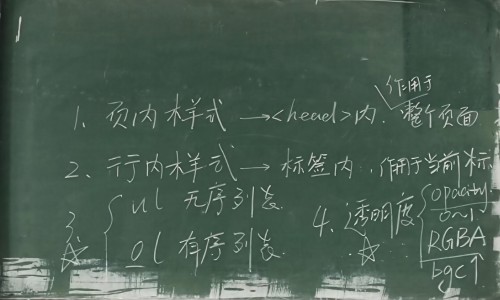 1、页内样式 →<head>内. 作用于整个页面
2、行内样式 → 标签内, 作用于当前标
3、☆ { ul 无序列表
ol 有序列表
4、透明度 ☆ { opacity
0~1
RGBA
bgc↑